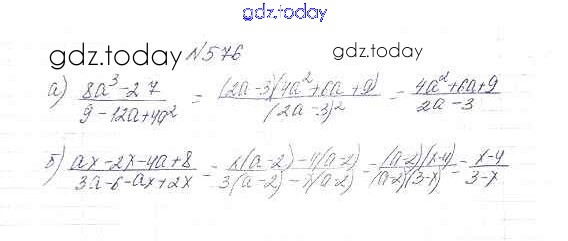 gdz.today
gdz.today №576 gdz.today
а) (8a³-27)/(9-12a+4a²) = ((2a-3)(4a²+6a+9))/((2a-3)²) = (4a²+6a+9)/(2a-3)
б) (ax-2x-4a+8)/(3a-6-ax+2x) = (x(a-2)-4(a-2))/(3(a-2)-x(a-2)) = ((a-2)(x-4))/((a-2)(3-x)) = (x-4)/(3-x)